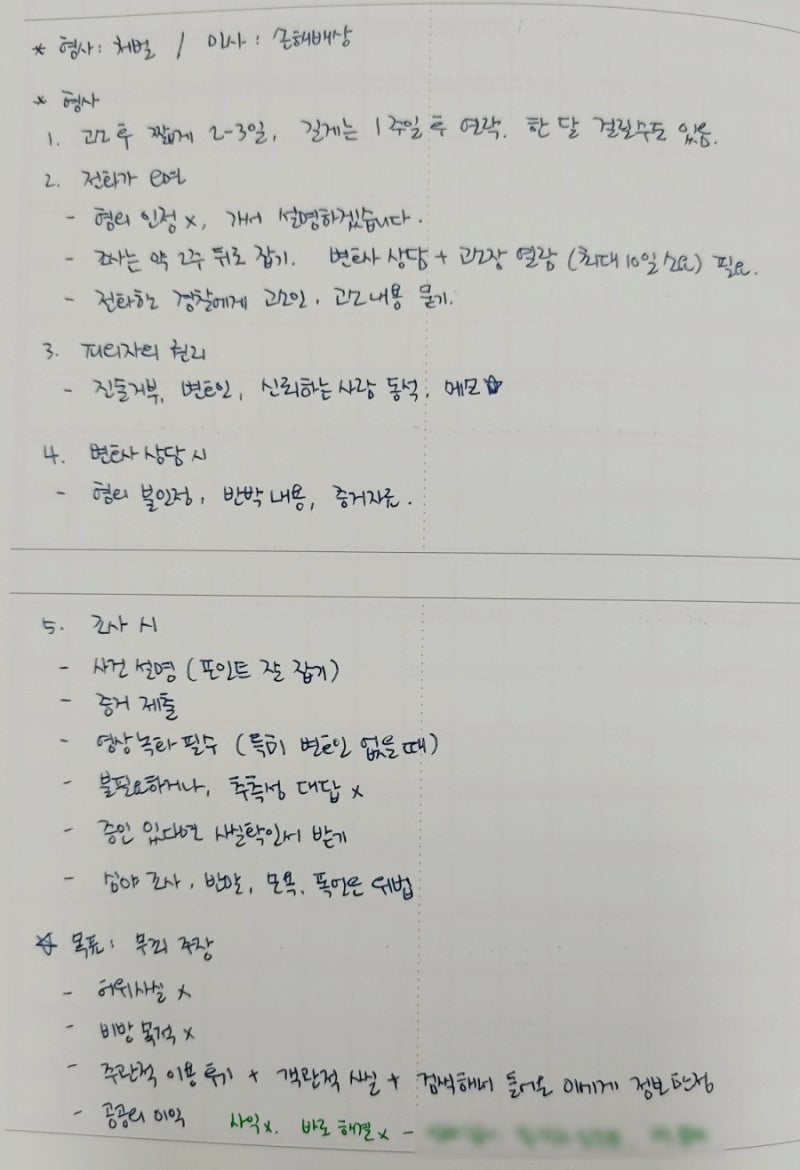 * 형사: 처벌 / 민사: 손해배상
* 형사
1. 고소 후 짧게 2-3일, 길게는 1주일 후 연락. 한 달 걸릴수도 있음.
2. 전화가 오면
- 혐의 인정 x, 가서 설명하겠습니다.
- 조사는 약 2주 뒤로 잡기. 변호사 상담 + 고소장 열람 (최대 10일 소요) 필요.
- 전화한 경찰에게 고소인, 고소 내용 묻기.
3. 피의자의 권리
- 진술거부, 변호인, 신뢰하는 사람 동석, 메모☆
4. 변호사 상담 시
- 혐의 불인정, 반박 내용, 증거자료.
5. 조사 시
- 사건 설명 (포인트 잘 잡기)
- 증거 제출
- 영상녹화 필수 (특히 변호인 없을 때)
- 불필요하거나, 추측성 대답 x
- 증인 있다면 사실확인서 받기
- 심야 조사, 반말, 모욕, 폭언은 위법
☆ 목표: 무죄 주장
- 허위사실 x
- 비방 목적 x
- 주관적 이용 후기 + 객관적 사실 + 검색해서 들어온 이에게 정보 한정
- 공공의 이익 사익 x. 바로 해결 x -